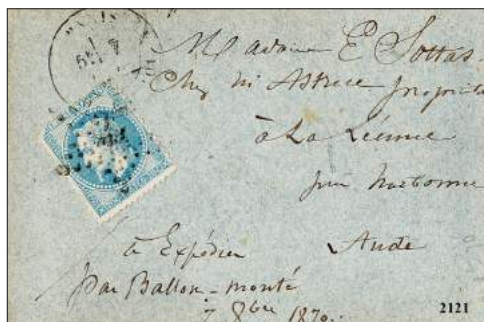 PARIS
Madame E Sottas
Chez Mr Astrece propriét
à La
par Narbonne
Aude
à Expédier
par Ballon-monté
7 9bre 1870.
2121